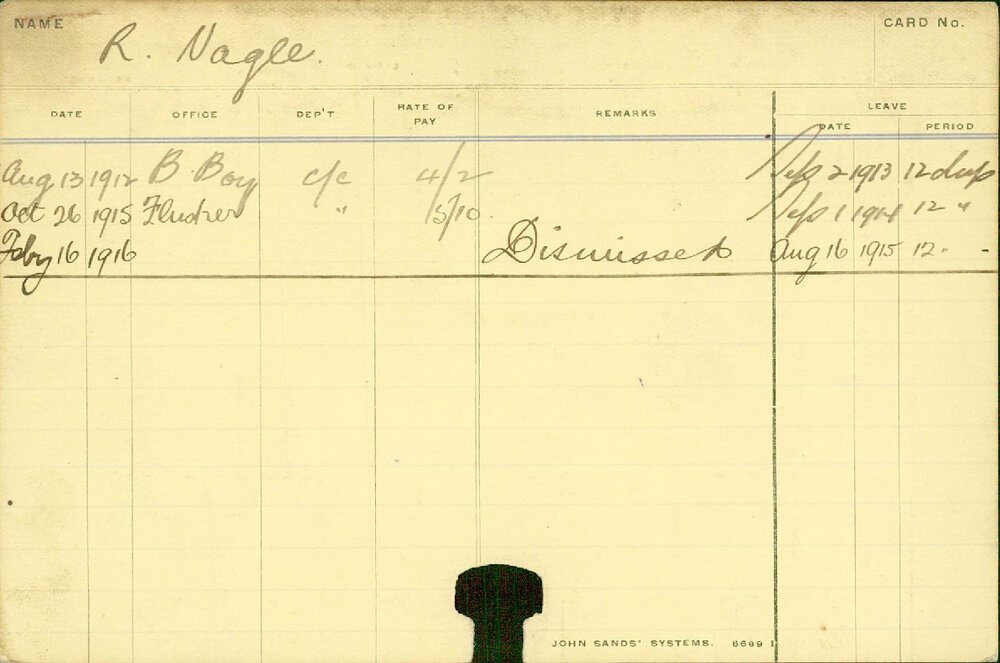 NAME R. Nagle. CARD No.
DATE OFFICE DEP'T RATE OF PAY REMARKS LEAVE
DATE PERIOD
Aug 13 1912 B. Boy c/c 4/2 Sep 2 1913 12 days
Oct 26 1915 " 5/10 Sep 1 1914 12 "
Feby 16 1916 Dismissed Aug 16 1915 12 "
JOHN SANDS' SYSTEMS. 8689 1